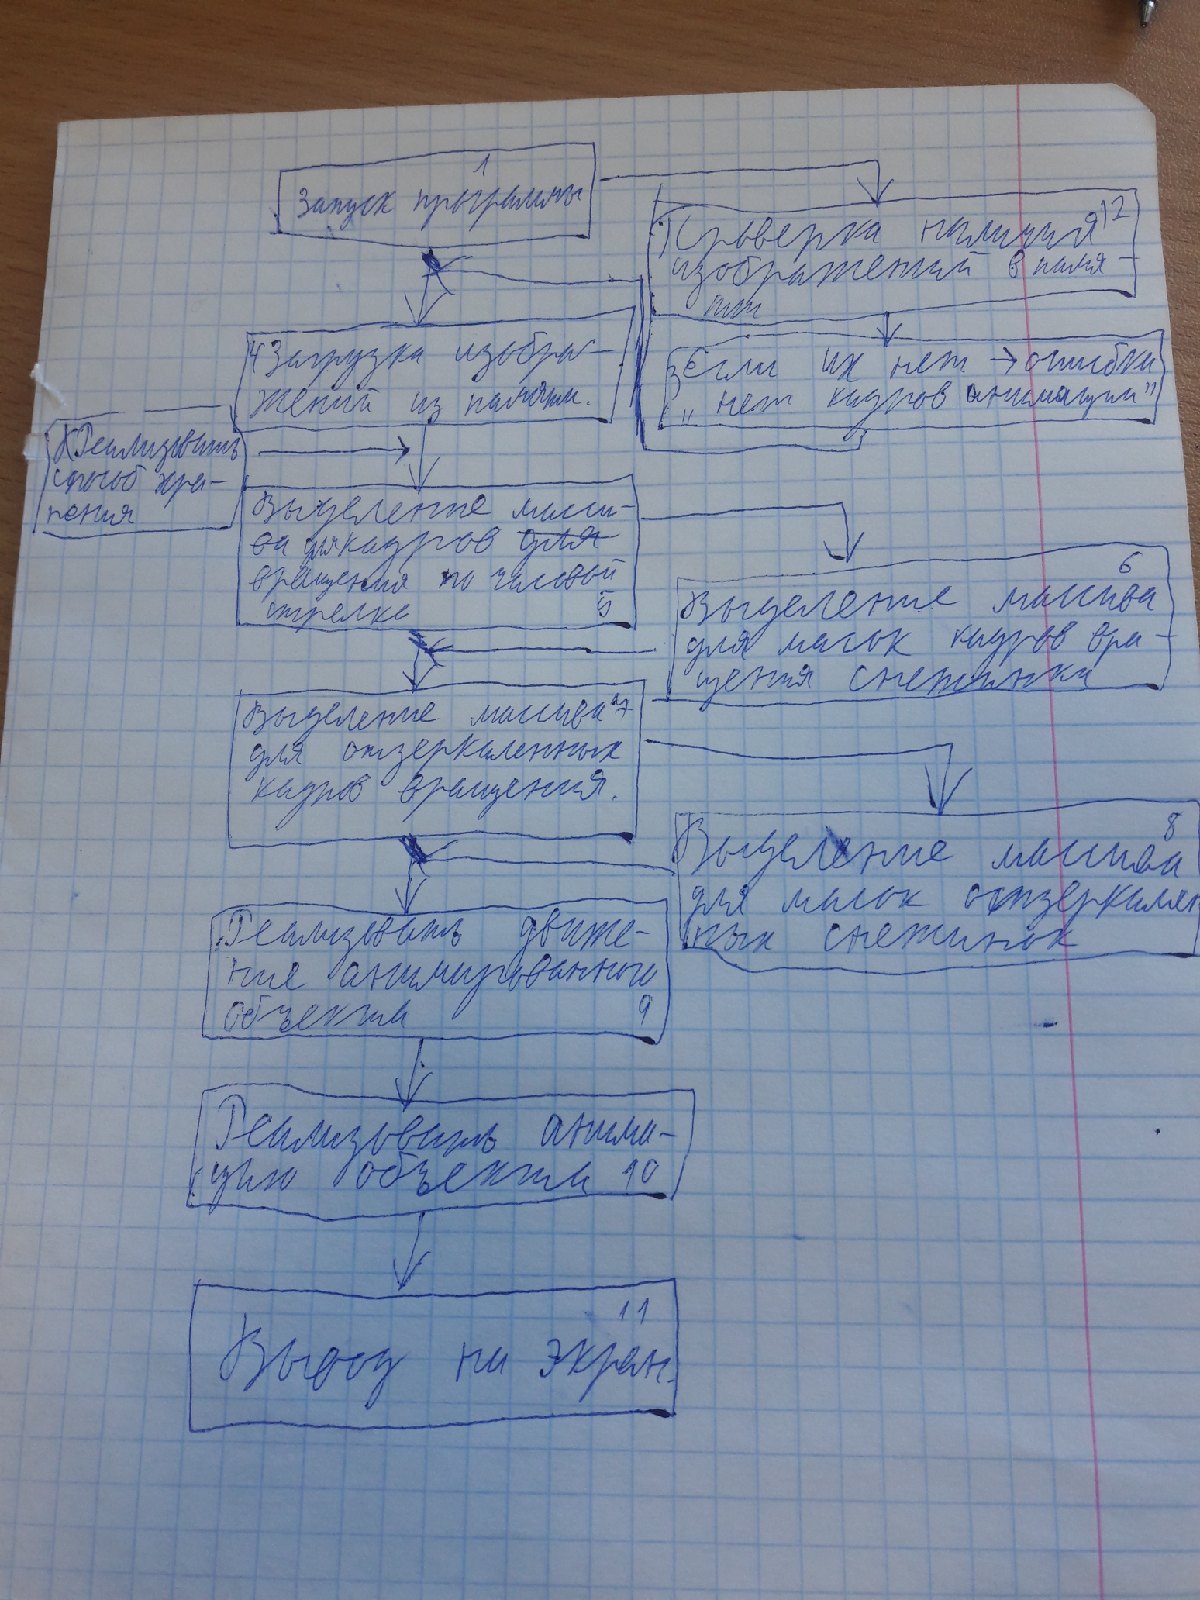 1
Запуск программы
Проверка наличия 2
изображений в памя-
ти
3 Если их нет → ошибка
"нет кадров анимации"
4 Загрузка изобра-
жений из памяти.
Реализовать
способ хра-
нения
Выделение масси-
ва для кадров для
вращения по часовой
стрелке 5
6
Выделение массива
для масок кадров вра-
щения снежинки
Выделение массива 7
для отзеркаленных
кадров вращения.
8
Выделение массива
для масок отзеркален
ных снежинок
Реализовать движе-
ние анимированного
объекта 9
Реализовать анима-
цию объекта 10
11
Вывод на экран.